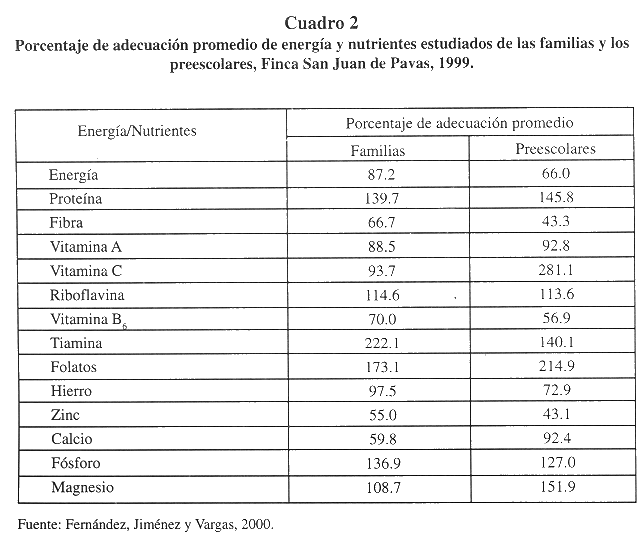 Cuadro 2
Porcentaje de adecuación promedio de energía y nutrientes estudiados de las familias y los
preescolares, Finca San Juan de Pavas, 1999.
Energía/Nutrientes Porcentaje de adecuación promedio
Familias Preescolares
Energía 87.2 66.0
Proteína 139.7 145.8
Fibra 66.7 43.3
Vitamina A 88.5 92.8
Vitamina C 93.7 281.1
Riboflavina 114.6 113.6
Vitamina B6 70.0 56.9
Tiamina 222.1 140.1
Folatos 173.1 214.9
Hierro 97.5 72.9
Zinc 55.0 43.1
Calcio 59.8 92.4
Fósforo 136.9 127.0
Magnesio 108.7 151.9
Fuente: Fernández, Jiménez y Vargas, 2000.